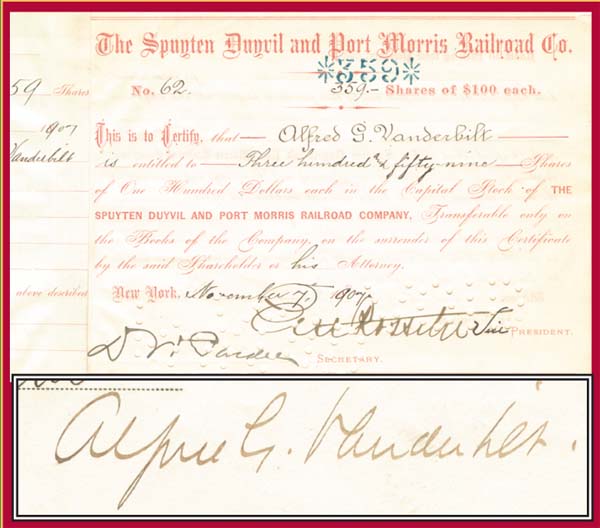 The Spuyten Duyvil and Port Morris Railroad Co.
*359*
59 Shares No. 62. 359.- Shares of $100 each.
1907 This is to Certify, that Alfred G. Vanderbilt
Vanderbilt is entitled to Three hundred & fifty-nine Shares
of One Hundred Dollars each in the Capital Stock of THE
SPUYTEN DUYVIL AND PORT MORRIS RAILROAD COMPANY, Transferable only on
the Books of the Company, on the surrender of this Certificate
by the said Shareholder or his Attorney.
above described New York, November 7 1907
PRESIDENT.
SECRETARY.
Alfred G. Vanderbilt.